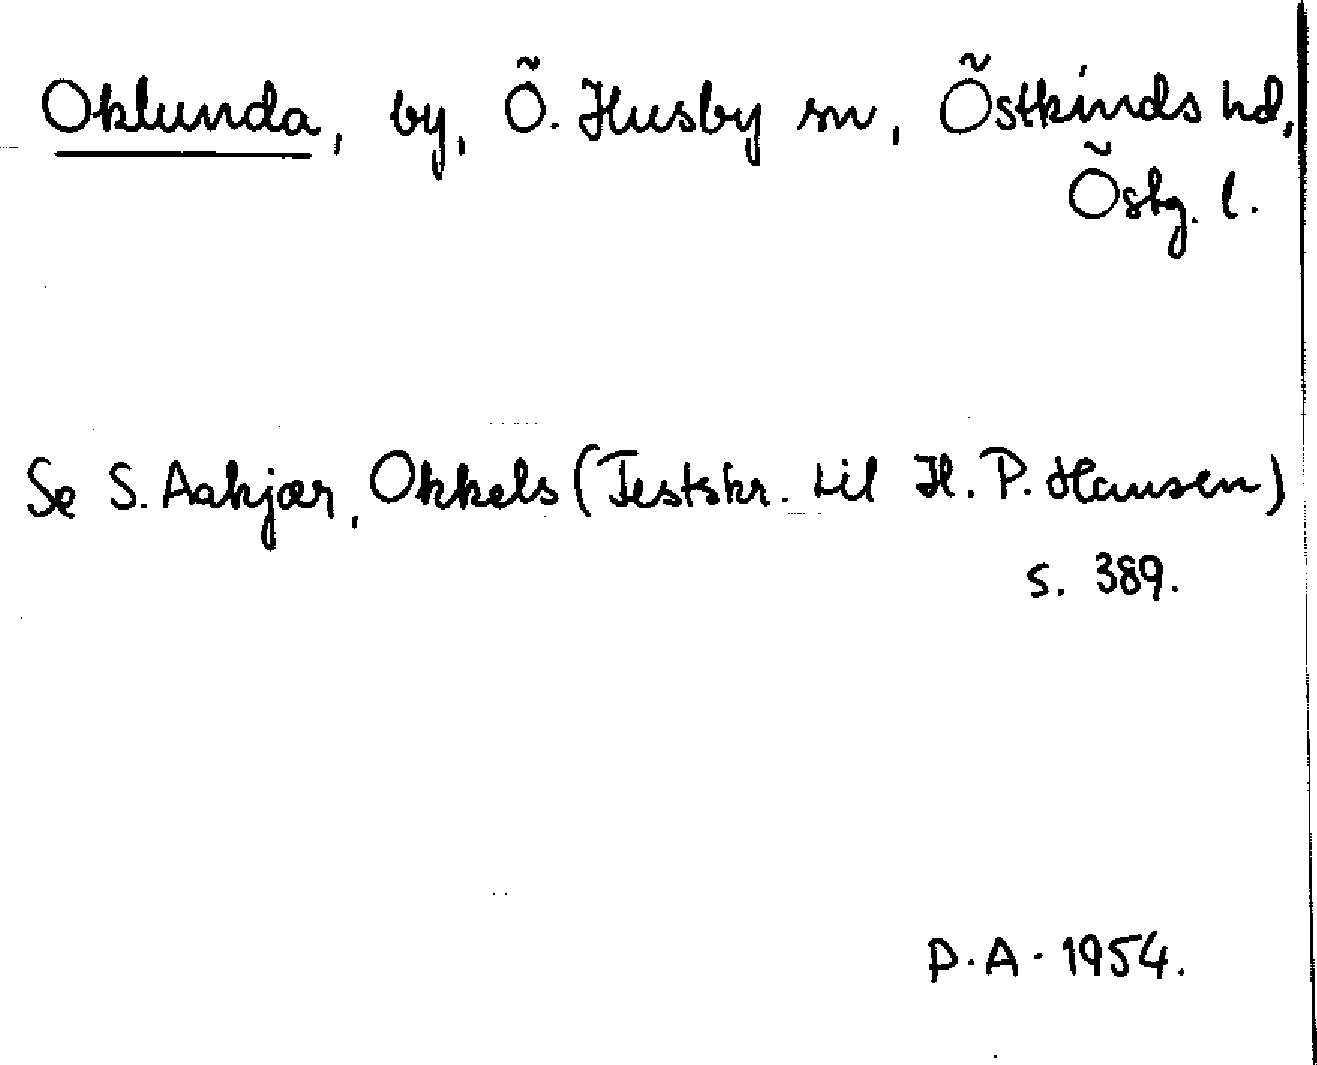 Oklunda, by, Ö. Husby sn, Östkinds hd,
Östg. l.
Se S. Aakjær, Okkels (Festskr. til H. P. Hansen)
s. 389.
P.A. 1954.